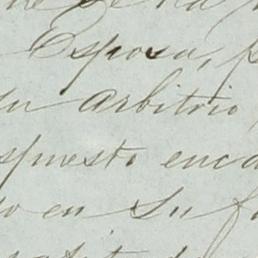 Esposa, p
su arbitrio
spuesto enca
o en su fa